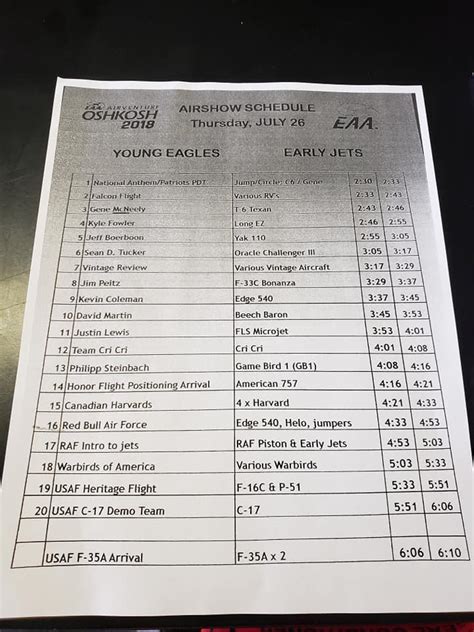 EAA AIRVENTURE
OSHKOSH
2018
AIRSHOW SCHEDULE
Thursday, JULY 26
EAA
YOUNG EAGLES EARLY JETS
1 National Anthem/Patriots PDT Jump/Circle: C6 / Gene 2:30 2:33
2 Falcon Flight Various RV's 2:33 2:43
3 Gene McNeely T-6 Texan 2:43 2:46
4 Kyle Fowler Long EZ 2:46 2:55
5 Jeff Boerboon Yak 110 2:55 3:05
6 Sean D. Tucker Oracle Challenger III 3:05 3:17
7 Vintage Review Various Vintage Aircraft 3:17 3:29
8 Jim Peitz F-33C Bonanza 3:29 3:37
9 Kevin Coleman Edge 540 3:37 3:45
10 David Martin Beech Baron 3:45 3:53
11 Justin Lewis FLS Microjet 3:53 4:01
12 Team Cri Cri Cri Cri 4:01 4:08
13 Philipp Steinbach Game Bird 1 (GB1) 4:08 4:16
14 Honor Flight Positioning Arrival American 757 4:16 4:21
15 Canadian Harvards 4 x Harvard 4:21 4:33
16 Red Bull Air Force Edge 540, Helo, jumpers 4:33 4:53
17 RAF Intro to jets RAF Piston & Early Jets 4:53 5:03
18 Warbirds of America Various Warbirds 5:03 5:33
19 USAF Heritage Flight F-16C & P-51 5:33 5:51
20 USAF C-17 Demo Team C-17 5:51 6:06
USAF F-35A Arrival F-35A x 2 6:06 6:10